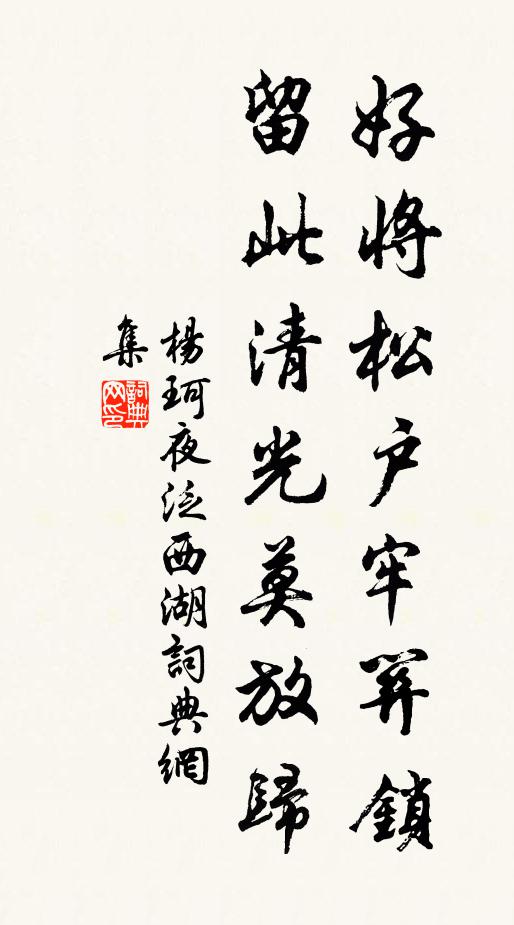 好將松户牢關鎖
留此清光莫放歸
楊珂夜泛西湖詞典網
集
詞典
网印